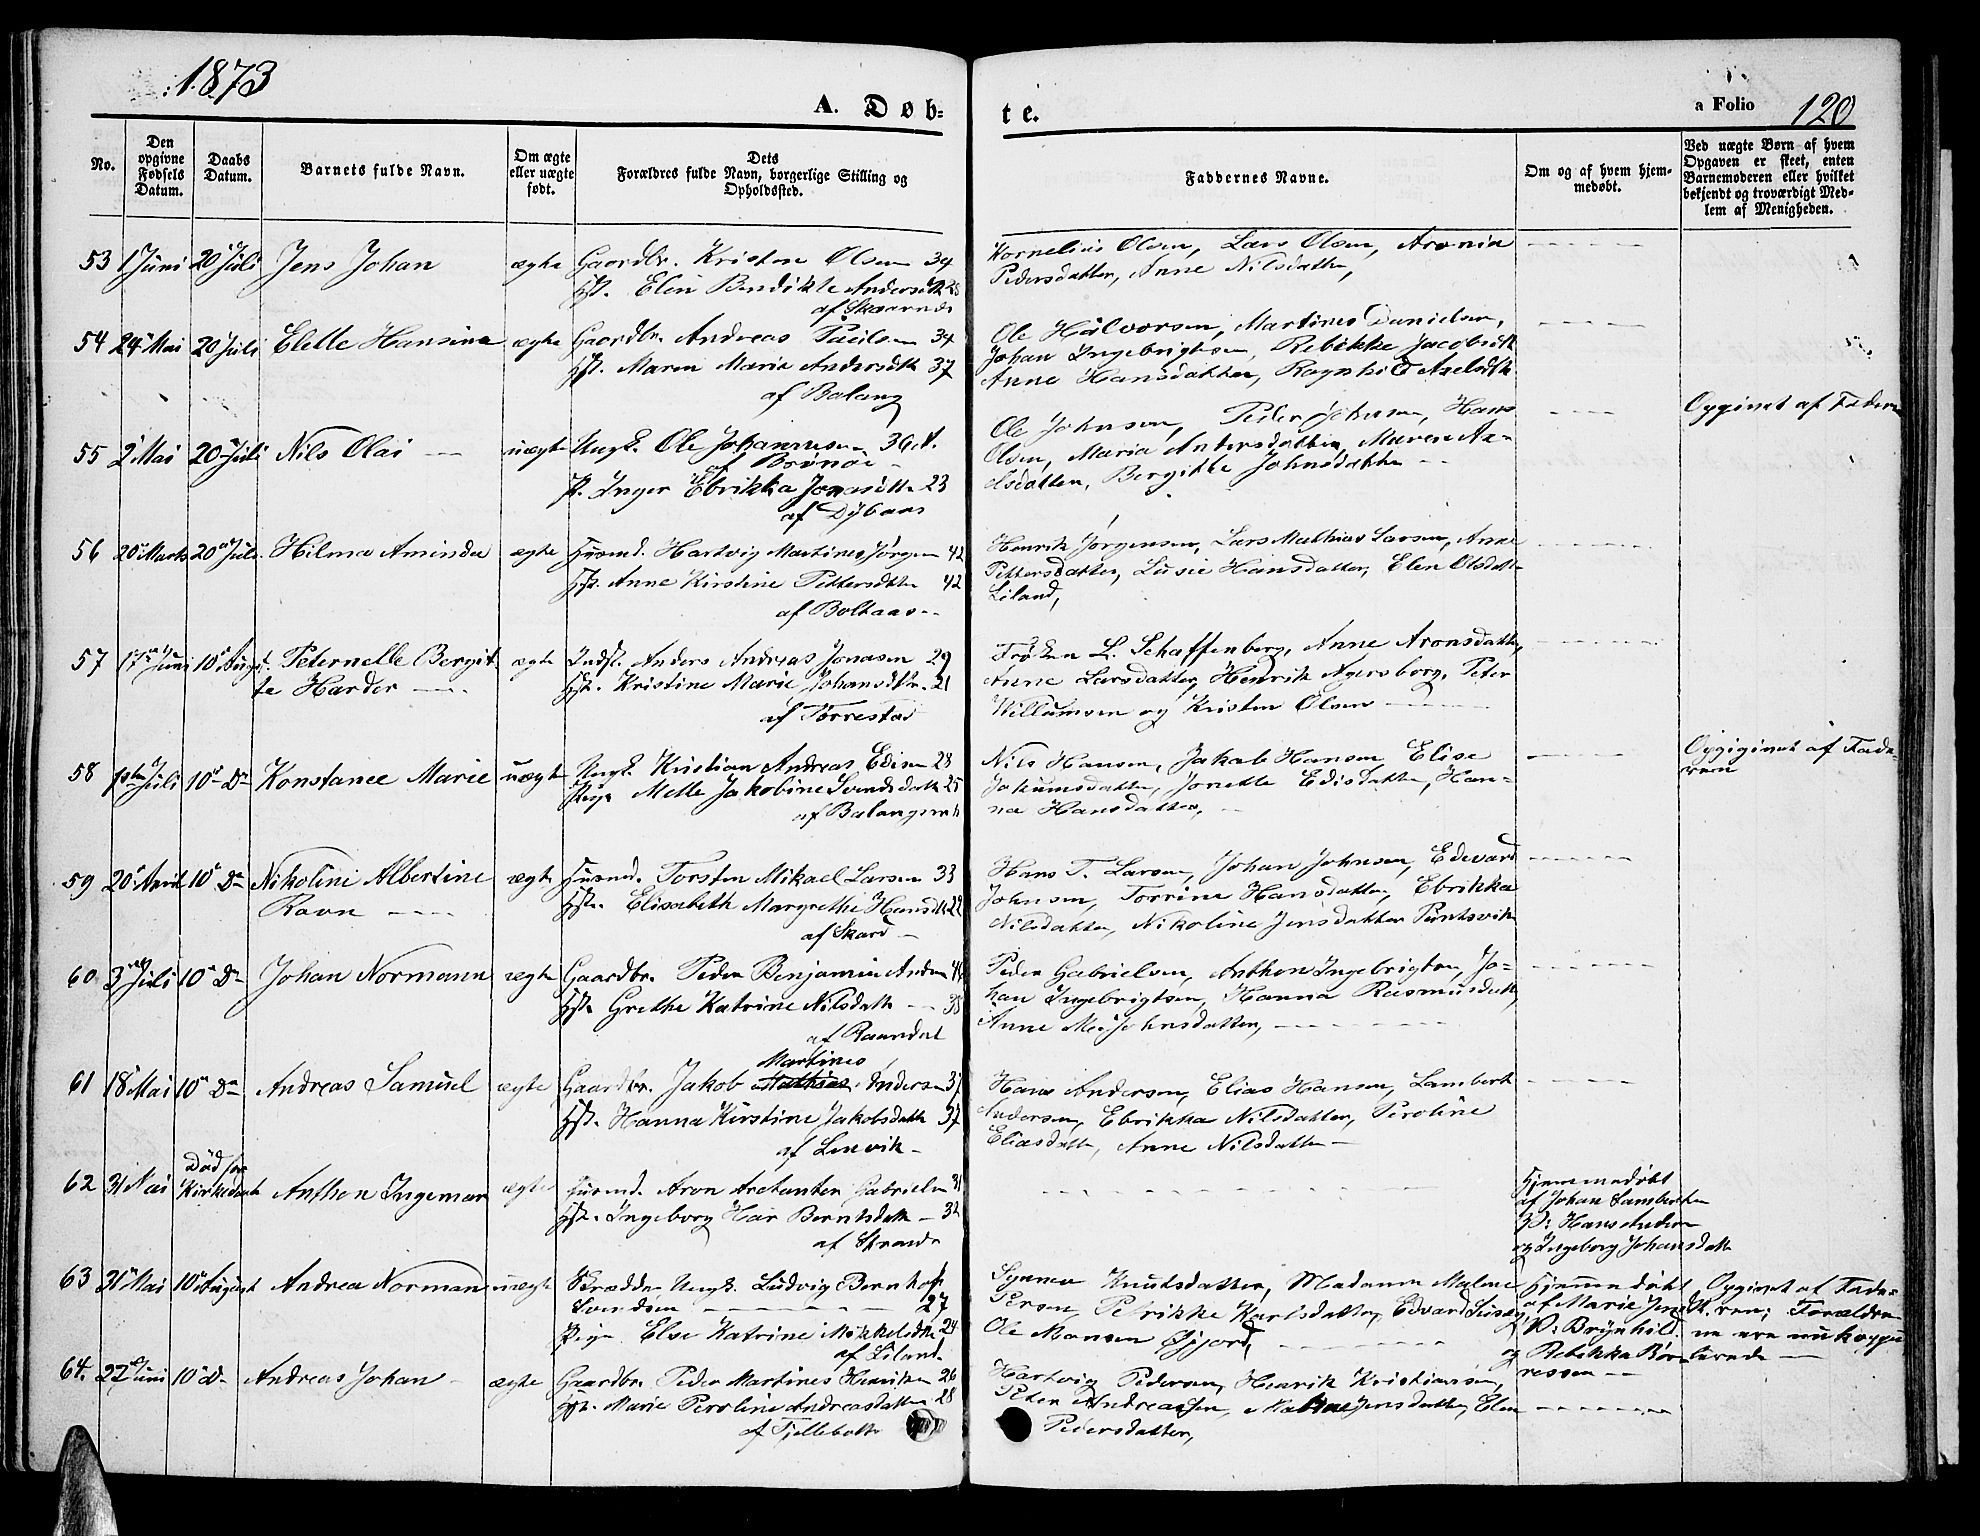 1873
A. Døb-
te.
a Folio 120
No.
Den opgivne Fødsels Datum.
Daabs Datum.
Barnets fulde Navn.
Om ægte eller uægte født.
Dets Forældres fulde Navn, borgerlige Stilling og Opholdssted.
Faddernes Navne.
Om og af hvem hjemmedøbt.
Ved uægte Børn af hvem Opgaven er skeet, enten Barnemoderen eller hvilket bekjendt og troværdigt Medlem af Menigheden.
53 1 Juni 20 Juli Jens Johan ægte Gaardbr. Kristen Olsen 34
Hst. Elen Bendikte Andersdtt 28
af
Kornelius Olsen, Lars Olsen, Aronia
Pedersdatter, Anne Nilsdatter,
54 24 Mai 20 Juli Elette Hansine ægte Gaardbr. Andreas Paulsen 34
Hst. Maren Marie Andersdtt 37
af Balang
Ole Halvorsen, Martines Danielsen,
Johan Ingebrigtsen, Rebikke Jacobsdtt
Anne Hansdatter, Ragnhild Axelsdtr
55 2 Mai 20 Juli Nils Olai uægte Ungk. Ole Johannesen 36 A.
af Brønøe
P. Inger Ebrikka Jonasdtt 23
af Dybaas
Ole Johnsen, Peder Johnsen, Hans
Olsen, Maria Andersdatter, Maren Ax-
elsdatter, Bergitte Johnsdatter
Opgivet af Faderen
56 20 Marts 20 Juli Hilma Aminda ægte Husmd. Hartvig Martines Jørgen 42
Hst. Anne Kirstine Pettersdtt 42
af Boltaas
Henrik Jørgensen, Lars Mathias Larsen, Anne
Pettersdatter, Lusie Hansdatter, Elen Olsdatt
Liland,
57 17 Juni 10 August Peternelle Bergit-
te Harder
ægte Indst. Anders Andreas Jonasen 29
Hst. Kristine Marie Johansdtr. 21
af Tørrestad
Frøken L. Schaffenberg, Anne Aronsdatter,
Anne Larsdatter, Hendrik Agersborg, Peter
Willumsen og Kristen Olsen
58 Juli 10 Do Konstance Marie uægte Ungk. Kristian Andreas Edisen 28
Pige Mette Jakobine Svendsdatt 25
af
Nils Hansen, Jakob Hansen, Elise
Jakumsdatter, Jonette Edisdatter, Han-
na Hansdatter,
Opgivet af Fade-
ren
59 20 April 10 Do Nikoline Albertine
Ravn
ægte Husmd. Torsten Mikael Larsen 33
Hst. Elisabeth Margrethe Hansdtt 22
af Skard
Hans T. Larsen, Johan Johnsen, Edevard
Johnsen, Torrine Hansdatter, Ebrikka
Nilsdatter, Nikoline Jensdatter
60 3 Juli 10 Do Johan Normann ægte Gaardbr. Peder Benjamin Anders
Hst. Grethe Katrine Nilsdatt
af
Peder Gabrielsen, Anthon Ingebrigtsen, Jo-
han Ingebrigtsen, Hanna Rasmusdatt,
Anne Johnsdatter,
61 18 Mai 10 Do Andreas Samuel ægte Gaardbr. Jakob Mathias Martines Andersen 37
Hst. Hanna Kirstine Jakobsdatt 37
af Lenvik
Hans Andersen, Elias Hansen, Lambert
Andersen, Ebrikka Nilsdatter, Peroline
Eliasdatt, Anne Nilsdatter
62 31 Mai Død før
Kirkedaab
Anthon Ingeman ægte Husmd. Aron Gabrielsen 31
Hst. Ingeborg Berntsdatt 32
af Strand
Hjemmedøbt
af Johan Lambertsen
V: Hans Andersen
og Ingeborg Johansdatt
63 31 Mai 10 August Andrea Norman uægte Skrædder Ungk. Ludvig Bernhoft
Svendsen 27
Pige Else Katrine Mikkelsdtr 24
af Liland
Synneva Knutsdatter, Madamme Malene
Persen, Petrikke Karlsdatter, Edvard
Ole Monsen
Hjemmedøbt
af Marie
V: Brynhild
og Rebekka
Opgivet af Fade-
ren; Forældre-
ne ere nu kopu-
lerede
64. 27 Juni 10 Do Andreas Johan ægte Gaardbr. Peder Martines Henriksen 26
Hst. Marie Peroline Andreasdatter 28
af
Hartvig Pedersen, Henrik Kristiansen,
Peter Andreassen, Jensdatter, Elen
Pedersdatter,